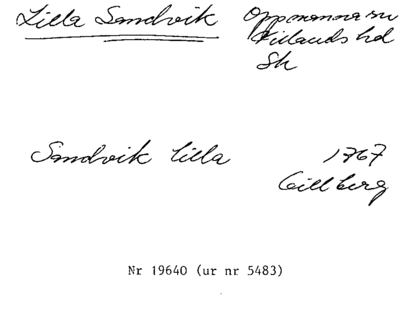 Lilla Sandvik
Oppmanna sn
Villands hd
Sk
Sandvik lilla
1767
Gillberg
Nr 19640 (ur nr 5483)